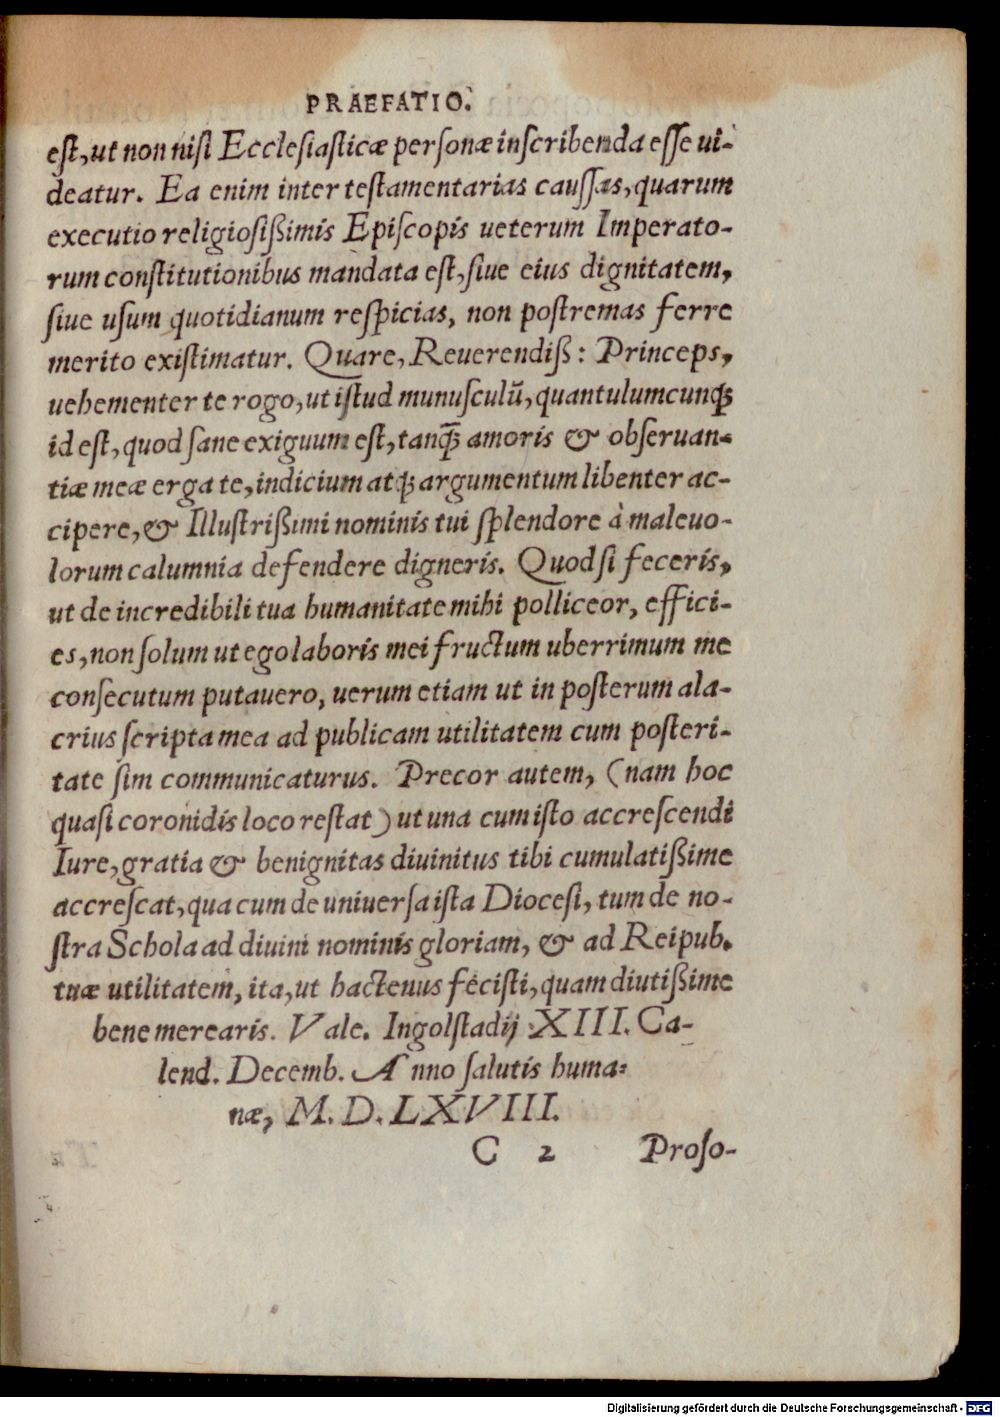 PRAEFATIO.
est, ut non nisi Ecclesiasticæ personæ inscribenda esse ui-
deatur. Ea enim inter testamentarias caussas, quarum
executio religiosißimis Episcopis ueterum Imperato-
rum constitutionibus mandata est, siue eius dignitatem,
siue usum quotidianum respicias, non postremas ferre
merito existimatur. Quare, Reuerendiß: Princeps,
uehementer te rogo, ut istud munusculũ, quantulumcunq́;
id est, quod sane exiguum est, tanq̃; amoris & obseruan-
tiæ meæ erga te, indicium atq́; argumentum libenter ac-
cipere, & Illustrißimi nominis tui splendore à maleuo-
lorum calumnia defendere digneris. Quod si feceris,
ut de incredibili tua humanitate mihi polliceor, effici-
es, non solum ut ego laboris mei fructum uberrimum me
consecutum putauero, uerum etiam ut in posterum ala-
crius scripta mea ad publicam utilitatem cum posteri-
tate sim communicaturus. Precor autem, (nam hoc
quasi coronidis loco restat) ut una cum isto accrescendi
Iure, gratia & benignitas diuinitus tibi cumulatißime
accrescat, qua cum de uniuersa ista Diocesi, tum de no-
stra Schola ad diuini nominis gloriam, & ad Reipub.
tuæ utilitatem, ita, ut hactenus fecisti, quam diutißime
bene merearis. Vale. Ingolstadij XIII. Ca-
lend. Decemb. Anno salutis huma-
næ, M. D. LXVIII.
C 2 Proso-
Digitalisierung gefördert durch die Deutsche Forschungsgemeinschaft - DFG